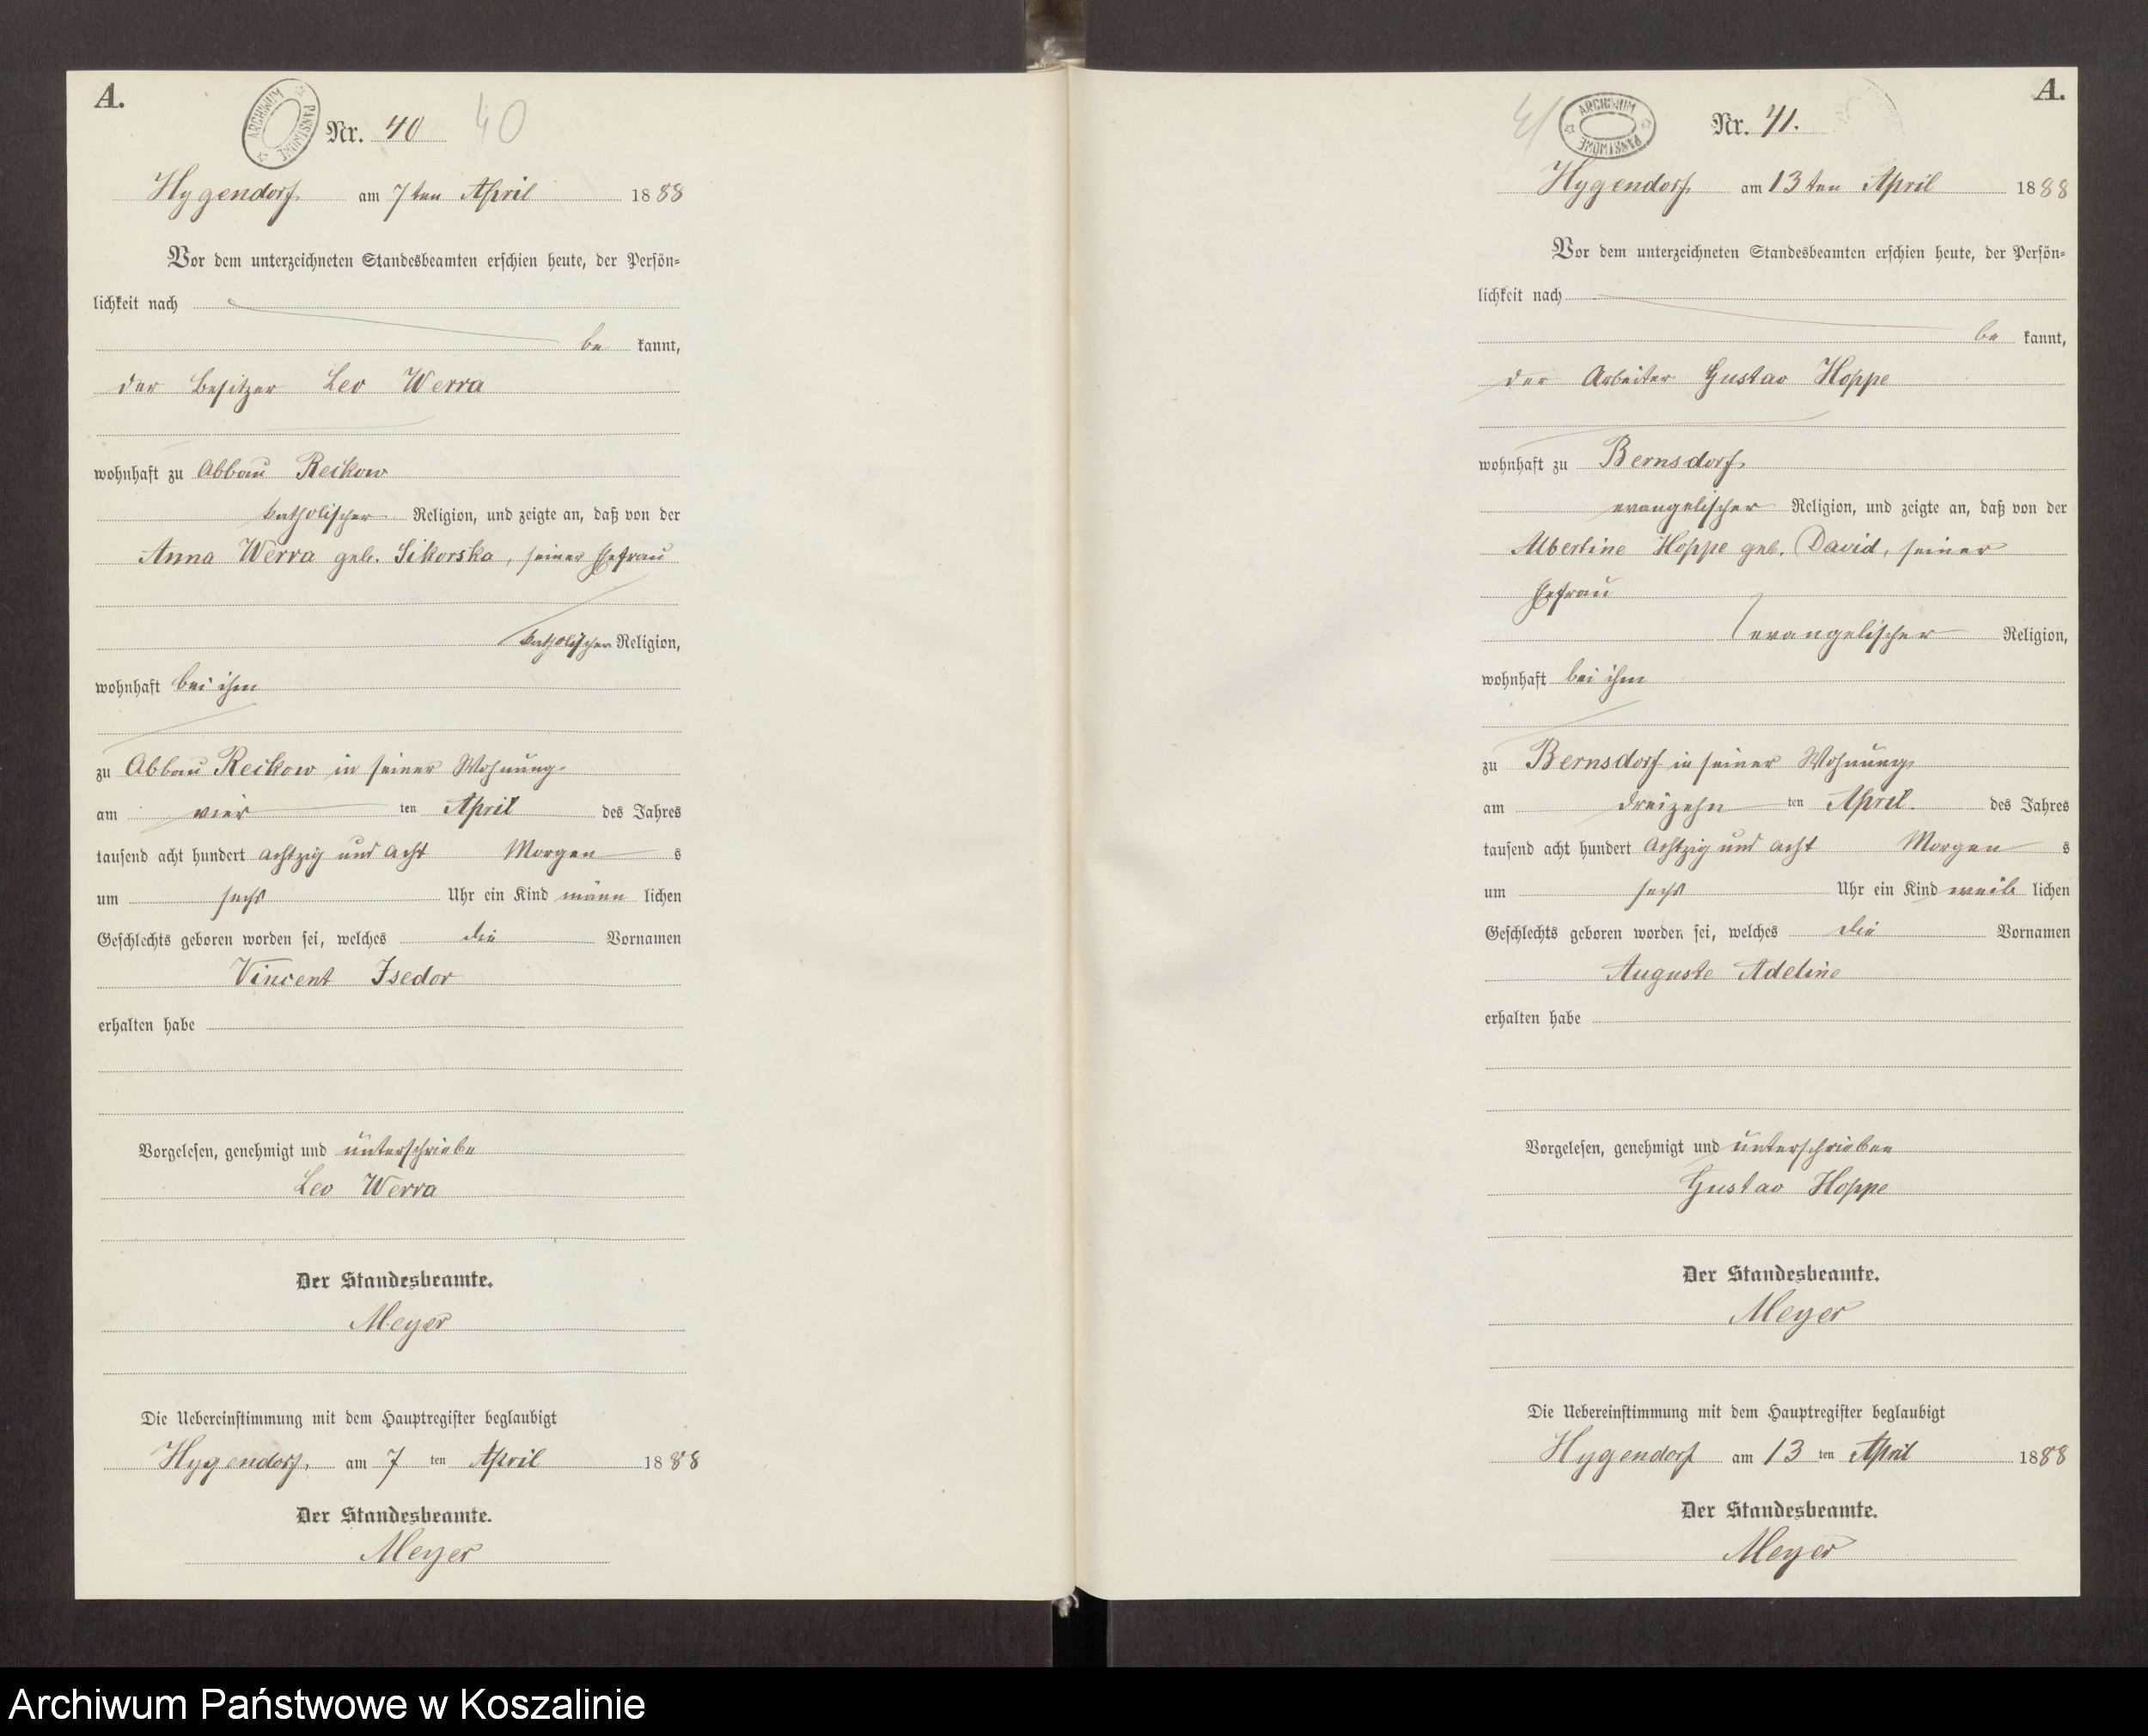 A.
ARCHIWUM PAŃSTWOWE
Nr. 40 40
Hygendorf am 7ten April 1888
Vor dem unterzeichneten Standesbeamten erschien heute, der Persön-
lichkeit nach
be kannt,
der Besitzer Leo Werra
wohnhaft zu Abbau Reckow
katholischer Religion, und zeigte an, daß von der
Anna Werra geb. Sikorska, seiner Ehefrau
katholischer Religion,
wohnhaft bei ihm
zu Abbau Reckow in seiner Wohnung
am vier ten April des Jahres
tausend acht hundert achtzig und acht Morgen s
um sechs Uhr ein Kind männ lichen
Geschlechts geboren worden sei, welches die Vornamen
Vincent Isedor
erhalten habe
Vorgelesen, genehmigt und unterschriebe
Leo Werra
Der Standesbeamte.
Meyer
Die Uebereinstimmung mit dem Hauptregister beglaubigt
Hygendorf, am 7 ten April 1888
Der Standesbeamte.
Meyer
A.
41
ARCHIWUM PAŃSTWOWE
Nr. 41.
Hygendorf am 13ten April 1888
Vor dem unterzeichneten Standesbeamten erschien heute, der Persön-
lichkeit nach
be kannt,
der Arbeiter Gustav Hoppe
wohnhaft zu Bernsdorf
evangelischer Religion, und zeigte an, daß von der
Albertine Hoppe geb. David, seiner
Ehefrau
evangelischer Religion,
wohnhaft bei ihm
zu Bernsdorf in seiner Wohnung
am dreizehn ten April des Jahres
tausend acht hundert achtzig und acht Morgen s
um sechs Uhr ein Kind weib lichen
Geschlechts geboren worden sei, welches die Vornamen
Auguste Adeline
erhalten habe
Vorgelesen, genehmigt und unterschrieben
Gustav Hoppe
Der Standesbeamte.
Meyer
Die Uebereinstimmung mit dem Hauptregister beglaubigt
Hygendorf am 13 ten April 1888
Der Standesbeamte.
Meyer
Archiwum Państwowe w Koszalinie